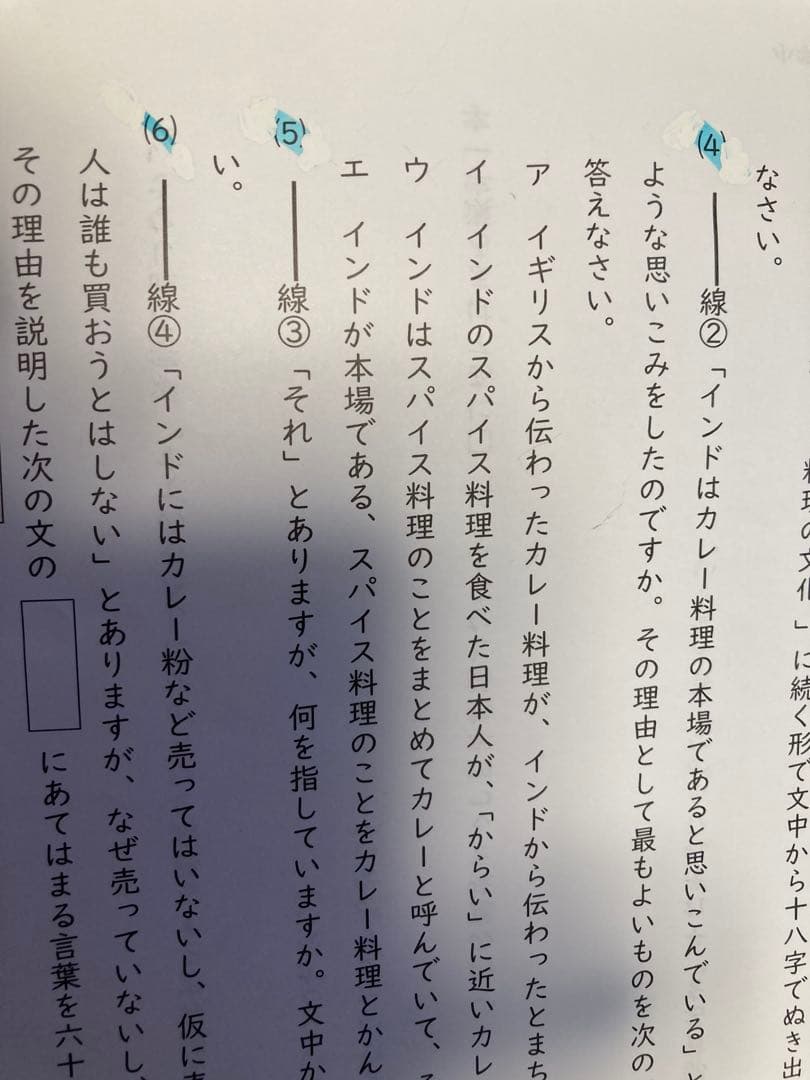 なさい。
料理の文化」に続く形で文中から十八字でぬき出
(4) ――線②「インドはカレー料理の本場であると思いこんでいる」と
ような思いこみをしたのですか。その理由として最もよいものを次の
答えなさい。
ア イギリスから伝わったカレー料理が、インドから伝わったとまち
イ インドのスパイス料理を食べた日本人が、「からい」に近いカレ
ウ インドはスパイス料理のことをまとめてカレーと呼んでいて、
エ インドが本場である、スパイス料理のことをカレー料理とかん
(5) ――線③「それ」とありますが、何を指していますか。文中か
い。
(6) ――線④「インドにはカレー粉など売ってはいないし、仮に
人は誰も買おうとはしない」とありますが、なぜ売っていないし、
その理由を説明した次の文の にあてはまる言葉を六十